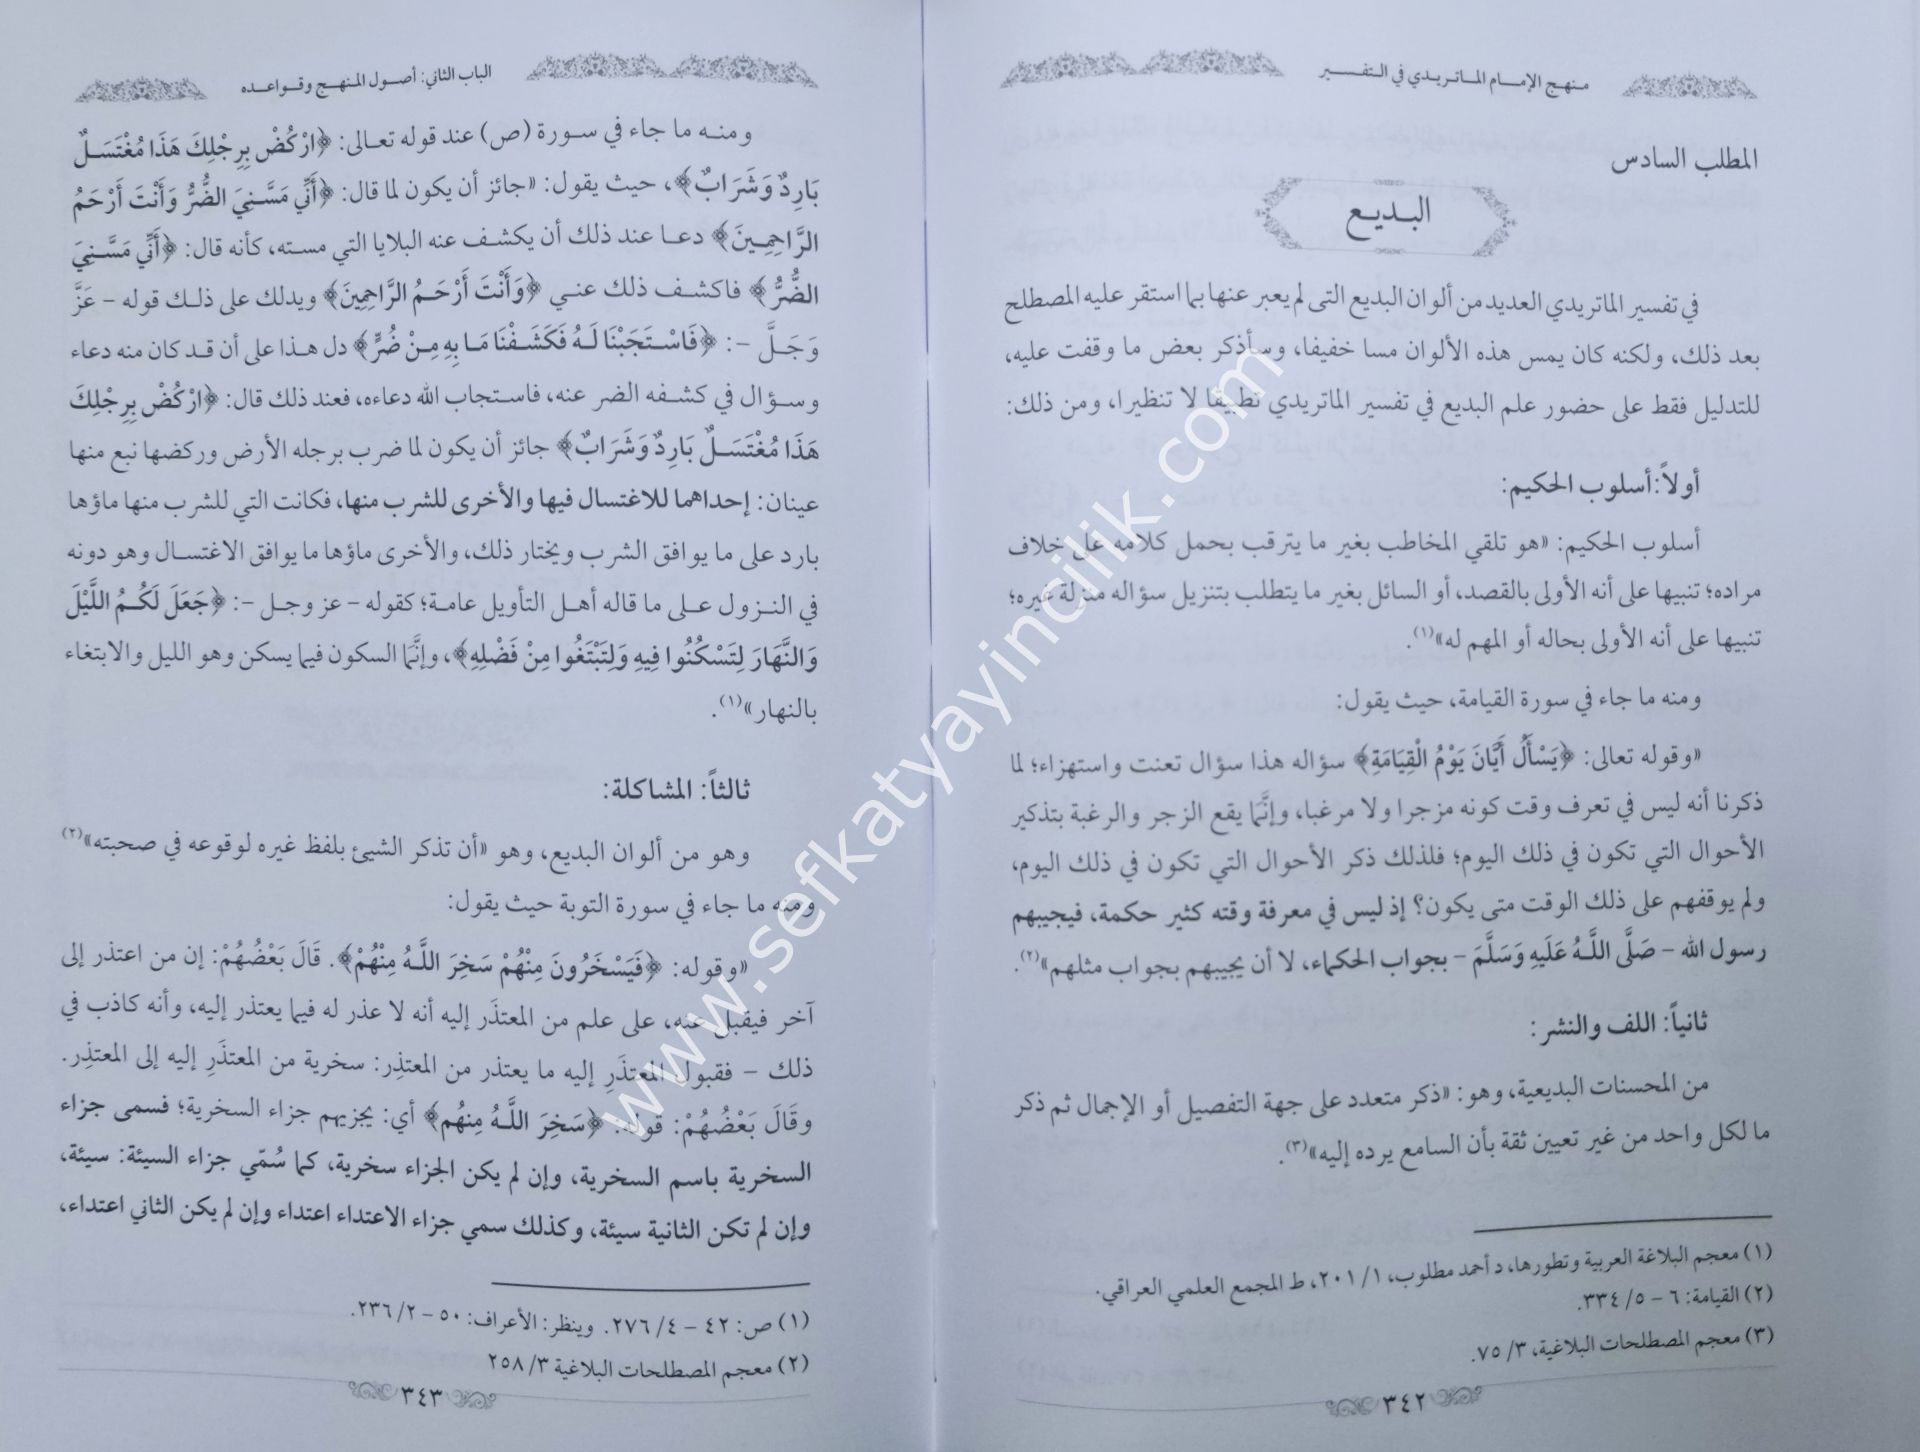 منهج الإمام الماتريدي في التفسير
المطلب السادس
البديع
في تفسير الماتريدي العديد من ألوان البديع التى لم يعبر عنها بما استقر عليه المصطلح
بعد ذلك، ولكنه كان يمس هذه الألوان مسا خفيفا، وسأذكر بعض ما وقفت عليه،
للتدليل فقط على حضور علم البديع في تفسير الماتريدي تطبيقا لا تنظيرا، ومن ذلك:
أولاً: أسلوب الحكيم:
أسلوب الحكيم: «هو تلقي المخاطب بغير ما يترقب بحمل كلامه على خلاف
مراده؛ تنبيها على أنه الأولى بالقصد، أو السائل بغير ما يتطلب بتنزيل سؤاله منزلة غيره؛
تنبيها على أنه الأولى بحاله أو المهم له»(١).
ومنه ما جاء في سورة القيامة، حيث يقول:
«وقوله تعالى: ﴿يَسْأَلُ أَيَّانَ يَوْمُ الْقِيَامَةِ﴾ سؤاله هذا سؤال تعنت واستهزاء؛ لما
ذكرنا أنه ليس في تعرف وقت كونه مزجرا ولا مرغبا، وإنَّما يقع الزجر والرغبة بتذكير
الأحوال التي تكون في ذلك اليوم؛ فلذلك ذكر الأحوال التي تكون في ذلك اليوم،
ولم يوقفهم على ذلك الوقت متى يكون؟ إذ ليس في معرفة وقته كثير حكمة، فيجيبهم
رسول الله - صَلَّى اللَّهُ عَلَيهِ وَسَلَّمَ - بجواب الحكماء، لا أن يجيبهم بجواب مثلهم»(٢).
ثانياً: اللف والنشر:
من المحسنات البديعية، وهو: «ذكر متعدد على جهة التفصيل أو الإجمال ثم ذكر
ما لكل واحد من غير تعيين ثقة بأن السامع يرده إليه»(٣).
(١) معجم البلاغة العربية وتطورها، د أحمد مطلوب، ١/ ٢٠١، ط المجمع العلمي العراقي.
(٢) القيامة: ٦ - ٥/ ٣٣٤.
(٣) معجم المصطلحات البلاغية، ٣/ ٧٥.
٣٤٢
الباب الثاني: أصول المنهج وقواعده
ومنه ما جاء في سورة (ص) عند قوله تعالى: ﴿ارْكُضْ بِرِجْلِكَ هَذَا مُغْتَسَلٌ
بَارِدٌ وَشَرَابٌ﴾، حيث يقول: «جائز أن يكون لما قال: ﴿أَنِّي مَسَّنِيَ الضُّرُّ وَأَنْتَ أَرْحَمُ
الرَّاحِمِينَ﴾ دعا عند ذلك أن يكشف عنه البلايا التي مسته، كأنه قال: ﴿أَنِّي مَسَّنِيَ
الضُّرُّ﴾ فاكشف ذلك عني ﴿وَأَنْتَ أَرْحَمُ الرَّاحِمِينَ﴾ ويدلك على ذلك قوله - عَزَّ
وَجَلَّ -: ﴿فَاسْتَجَبْنَا لَهُ فَكَشَفْنَا مَا بِهِ مِنْ ضُرٍّ﴾ دل هذا على أن قد كان منه دعاء
وسؤال في كشفه الضر عنه، فاستجاب الله دعاءه، فعند ذلك قال: ﴿ارْكُضْ بِرِجْلِكَ
هَذَا مُغْتَسَلٌ بَارِدٌ وَشَرَابٌ﴾ جائز أن يكون لما ضرب برجله الأرض وركضها نبع منها
عينان: إحداهما للاغتسال فيها والأخرى للشرب منها، فكانت التي للشرب منها ماؤها
بارد على ما يوافق الشرب ويختار ذلك، والأخرى ماؤها ما يوافق الاغتسال وهو دونه
في النزول على ما قاله أهل التأويل عامة؛ كقوله - عز وجل -: ﴿جَعَلَ لَكُمُ اللَّيْلَ
وَالنَّهَارَ لِتَسْكُنُوا فِيهِ وَلِتَبْتَغُوا مِنْ فَضْلِهِ﴾، وإنَّما السكون فيما يسكن وهو الليل والابتغاء
بالنهار»(١).
ثالثاً: المشاكلة:
وهو من ألوان البديع، وهو «أن تذكر الشيئ بلفظ غيره لوقوعه في صحبته»(٢)
ومنه ما جاء في سورة التوبة حيث يقول:
«وقوله: ﴿فَيَسْخَرُونَ مِنْهُمْ سَخِرَ اللَّهُ مِنْهُمْ﴾. قَالَ بَعْضُهُمْ: إن من اعتذر إلى
آخر فيقبل عنه، على علم من المعتذَر إليه أنه لا عذر له فيما يعتذر إليه، وأنه كاذب في
ذلك - فقبول المعتذَرِ إليه ما يعتذر من المعتذِر: سخرية من المعتذَرِ إليه إلى المعتذِر.
وقَالَ بَعْضُهُمْ: قوله: ﴿سَخِرَ اللَّهُ مِنهُم﴾ أي: يجزيهم جزاء السخرية؛ فسمى جزاء
السخرية باسم السخرية، وإن لم يكن الجزاء سخرية، كما سُمّي جزاء السيئة: سيئة،
وإن لم تكن الثانية سيئة، وكذلك سمي جزاء الاعتداء اعتداء وإن لم يكن الثاني اعتداء،
(١) ص: ٤٢ - ٤/ ٢٧٦. وينظر: الأعراف: ٥٠ - ٢/ ٢٣٦.
(٢) معجم المصطلحات البلاغية ٣/ ٢٥٨
٣٤٣
www.sefkatyayincilik.com